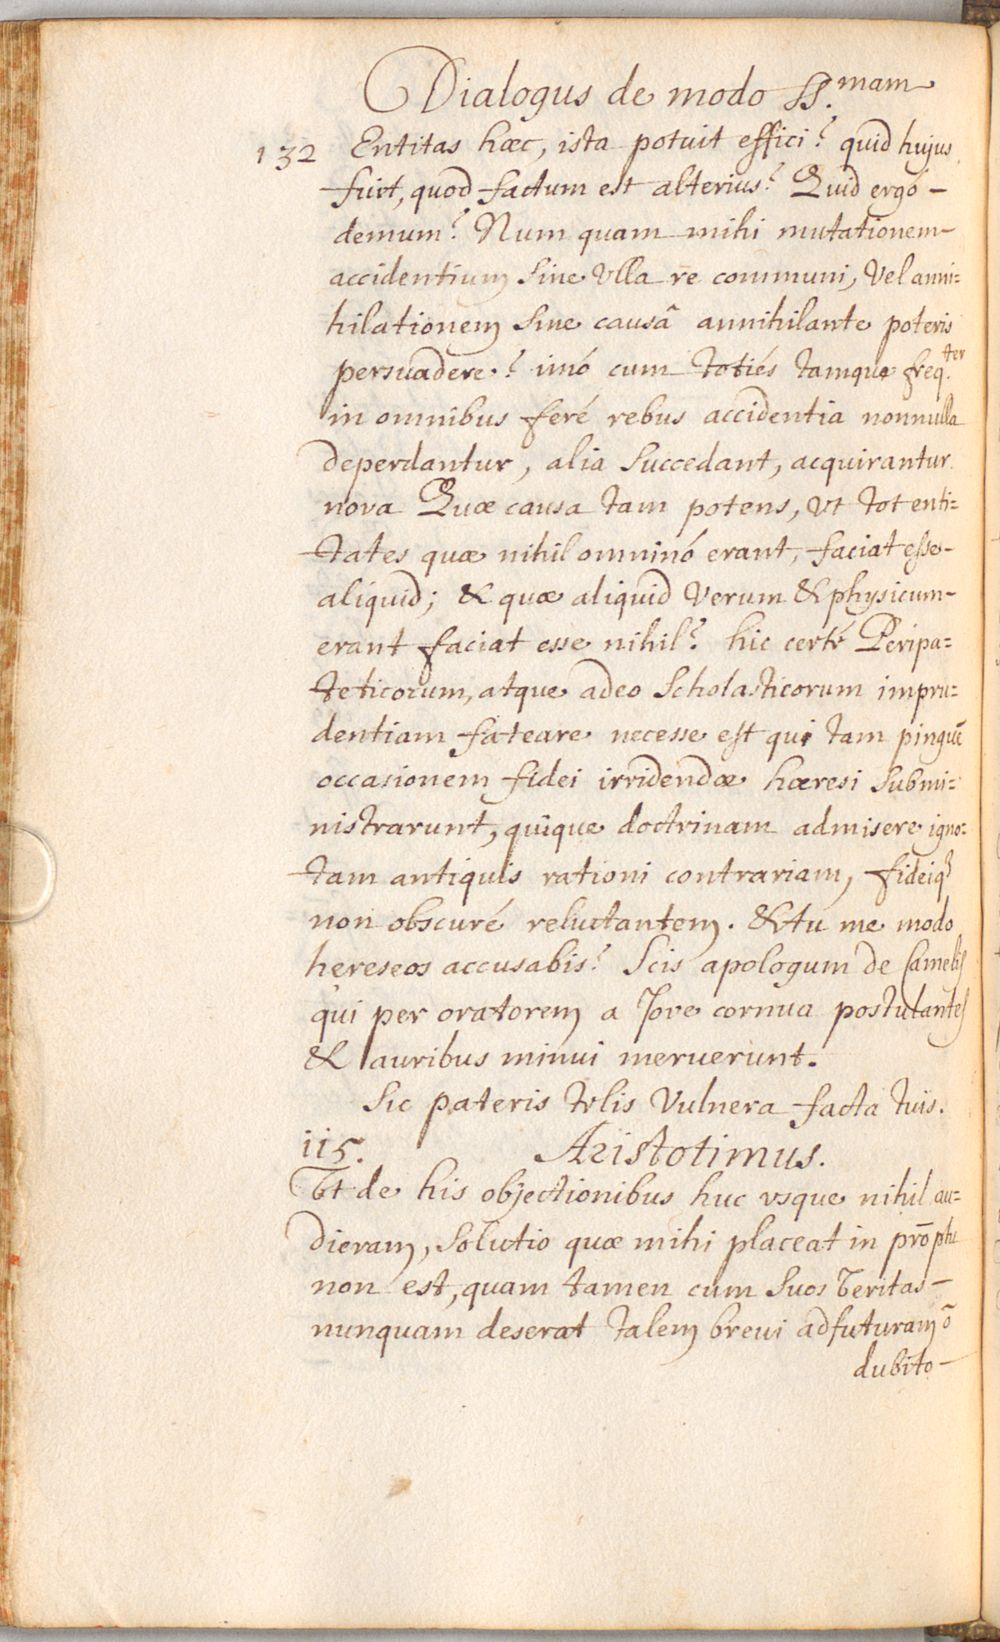 Dialogus de modo SS.mam
132 Entitas hæc, ista potuit effici? quid hujus
fuit, quod factum est alterius? Quid ergó -
demum? Num quam mihi mutationem-
accidentium sine Vlla re communi, Vel anni=
hilationem sine causâ annihilante poteris
persuadere? imó cum totiés tamque freq.ter
in omnibus feré rebus accidentia nonnulla
deperdantur, alia succedant, acquirantur
nova Quæ causa tam potens, Vt tot enti=
tates quæ nihil omninó erant, faciat esse-
aliquid; & quæ aliquid Verum & physicum-
erant faciat esse nihil? hic certé Peripa=
teticorum, atque adeo Scholasticorum impru=
dentiam fateare necesse est qui tam pinguē
occasionem fidei irridendæ hæresi submi=
nistrarunt, quique doctrinam admisere igno=
tam antiquis rationi contrariam, fideiq3
non obscuré reluctantem. & tu me modo
hereseos accusabis? Scis apologum de Camelis
qui per oratorem a Jove cornua postulantes
& auribus minui meruerunt.
Sic pateris telis Vulnera facta tuis.
115. Aristotimus.
Vt de his objectionibus huc vsque nihil au=
dieram, solutio quæ mihi placeat in prōptu
non est, quam tamen cum suos Veritas-
nunquam deserat talem brevi adfuturam ō
dubito-